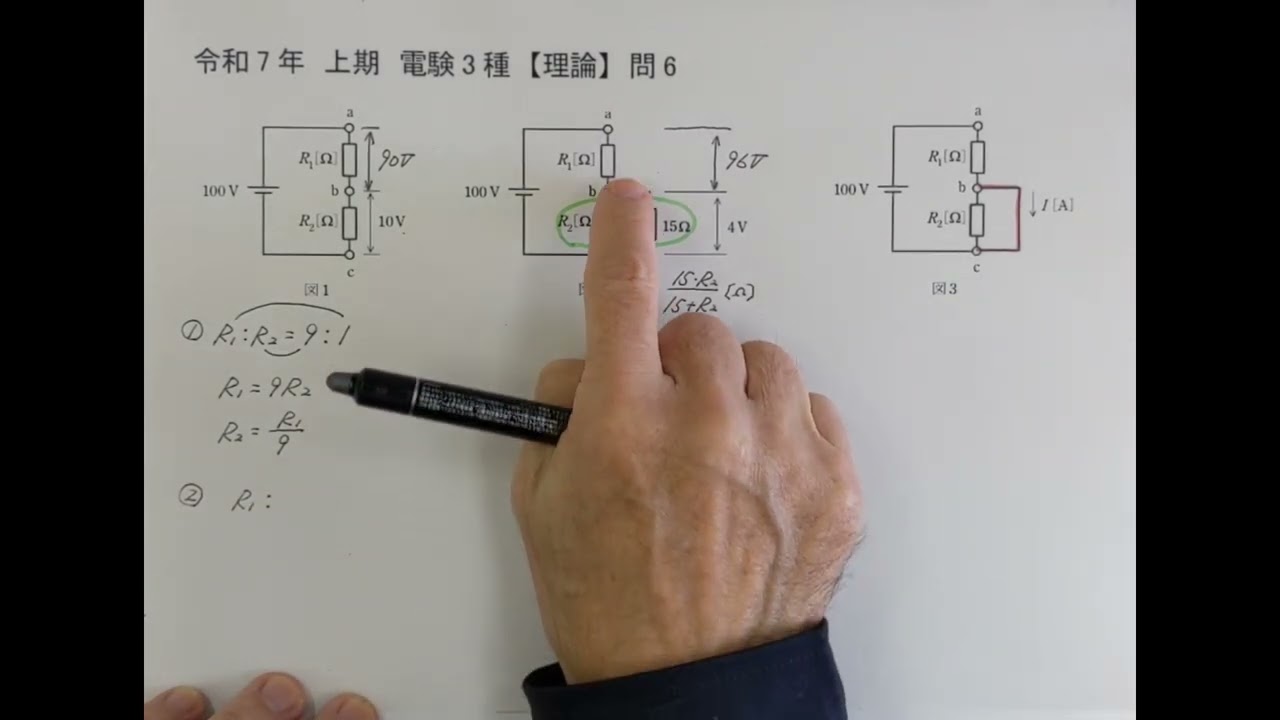 令和7年 上期 電験3種【理論】 問6
a
R₁[Ω]
90V
100V
b
R₂[Ω]
10V
c
図1
a
R₁[Ω]
96V
100V
b
R₂[Ω
15Ω
4V
15・R₂/15+R₂ [Ω]
a
R₁[Ω]
100V
b
R₂[Ω]
I[A]
c
図3
① R₁:R₂=9:1
R₁=9R₂
R₂=R₁/9
② R₁: